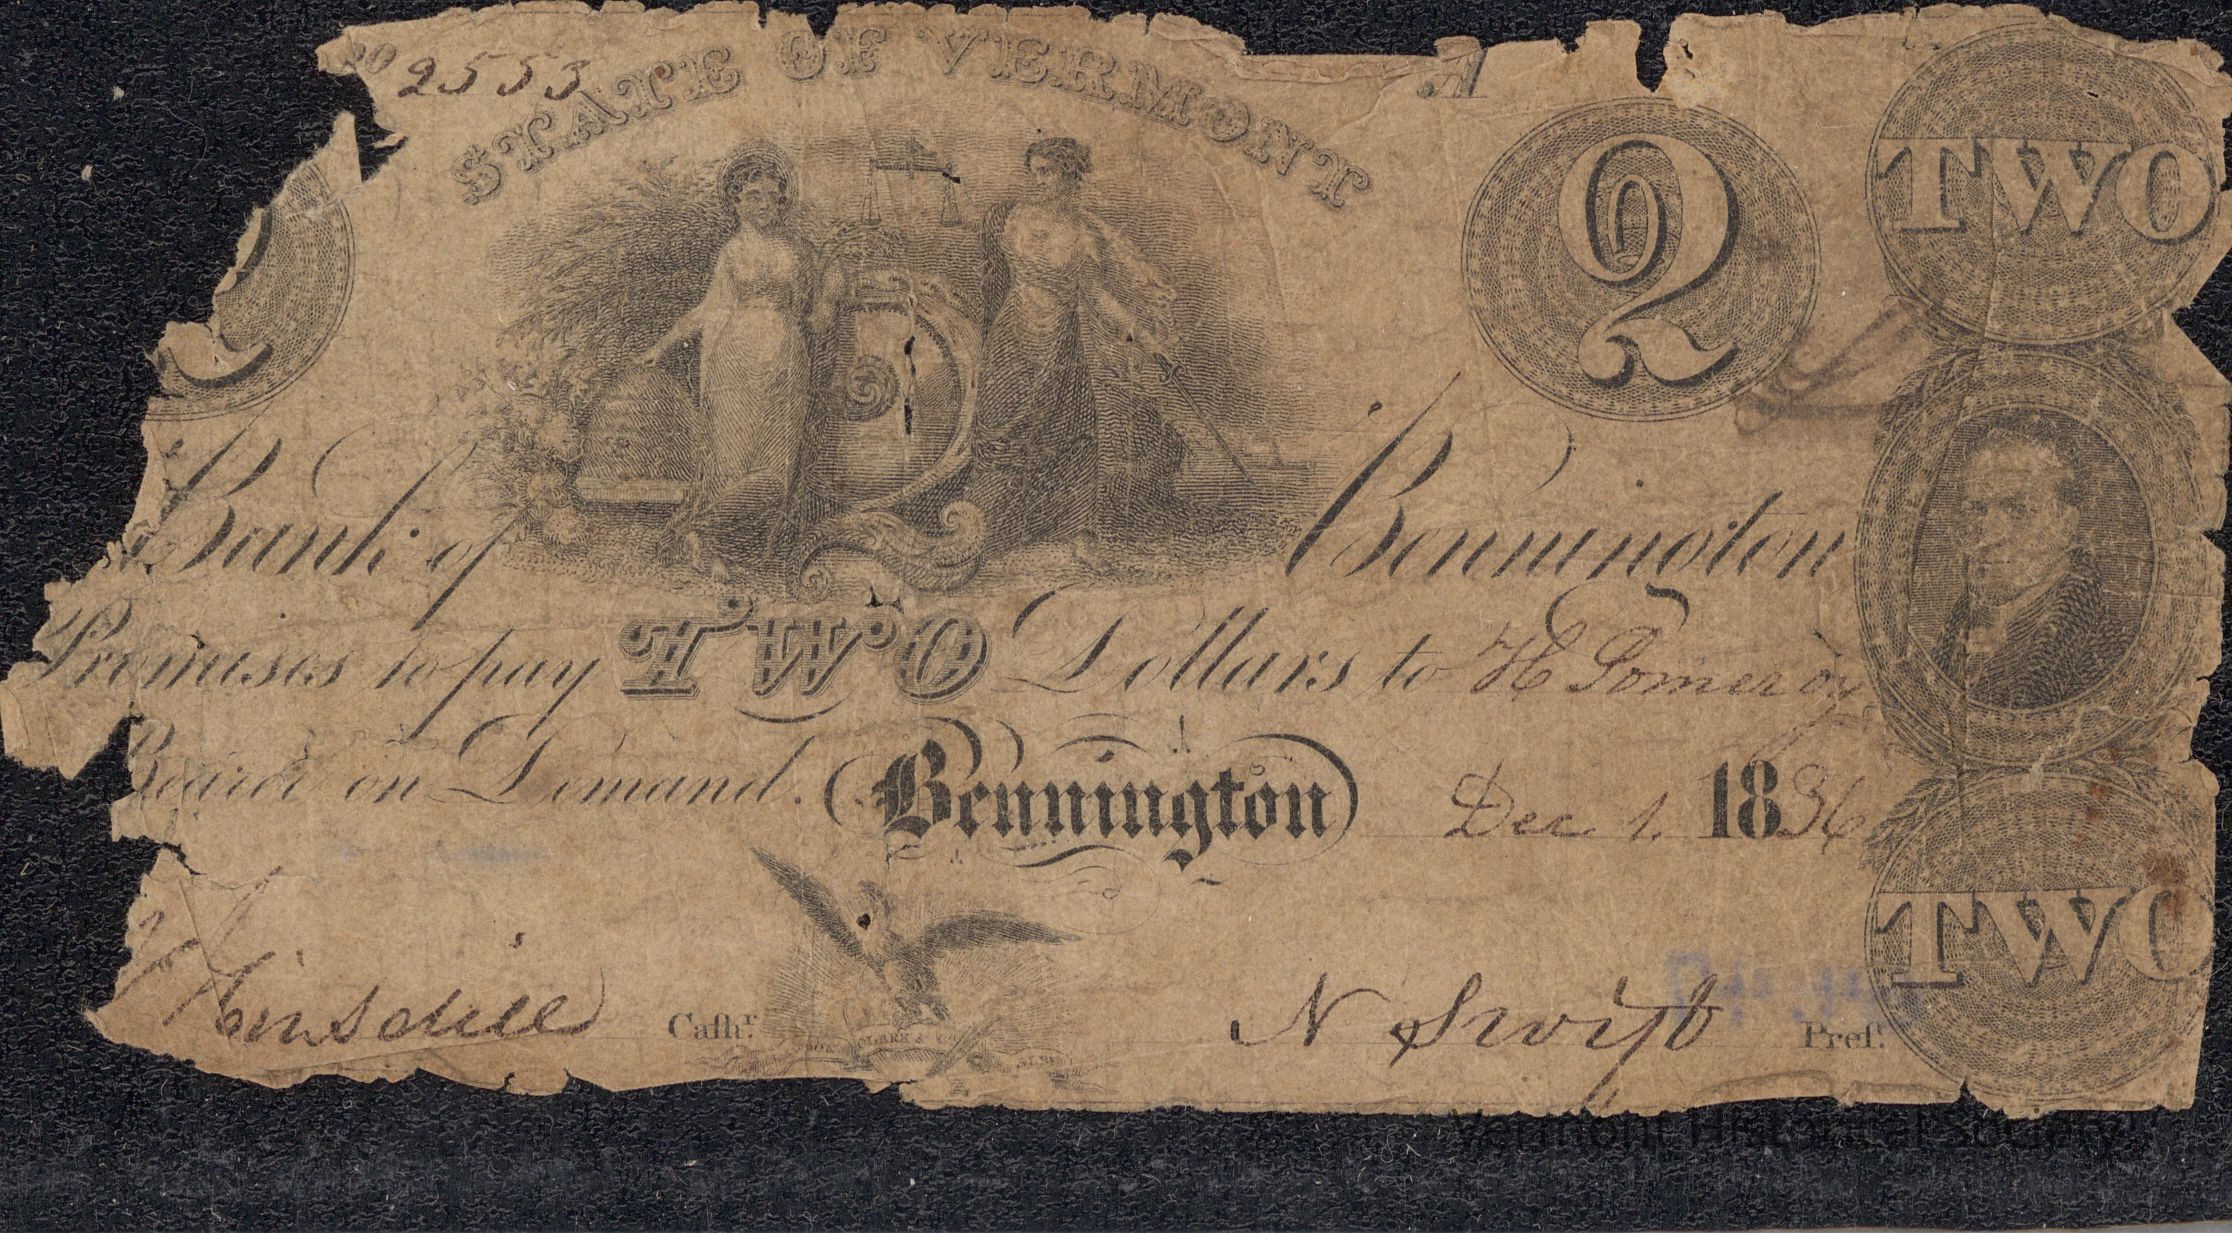 No 2553
STATE OF VERMONT
A
2
TWO
Bank of Bennington
Promises to pay TWO Dollars to H Pomeroy
or Bearer on Demand. Bennington Dec 1. 1836
Hinsdill Cashr. N Swift Prest.
CLARK & Co. ALBY
TWO
Vermont Historical Society